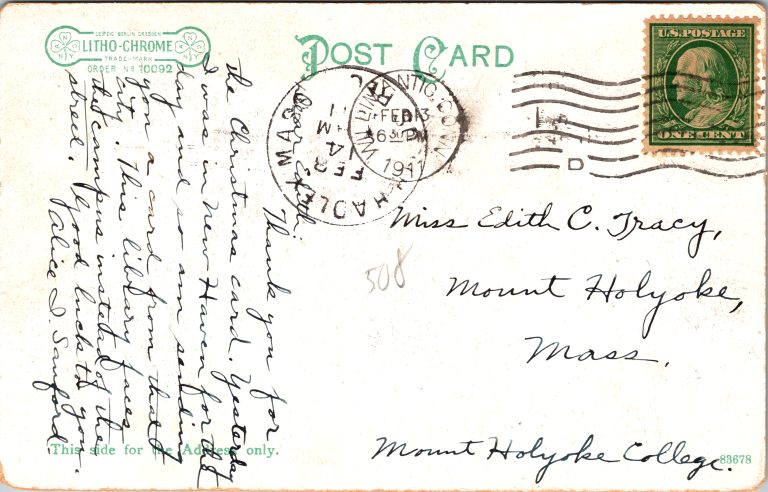 LEIPZIG BERLIN DRESDEN
LITHO-CHROME
TRADE-MARK
ORDER No 10092
N Y
N Y
POST CARD
U.S. POSTAGE
ONE CENT
WILLIMANTIC, CONN
FEB 13
6 PM
1911
D
HADLEY MASS
FEB
14
AM
11
REC'D
Dear Edith:
Thank you for
the Christmas card. Yesterday
I was in New Haven for the
day and so am sending
you a card from that
city. This library faces
the campus instead of the
street. Good luck to you.
Alice I. Sanford
Miss Edith C. Tracy,
Mount Holyoke,
Mass.
Mount Holyoke College.
508
This side for the Address only.
83678